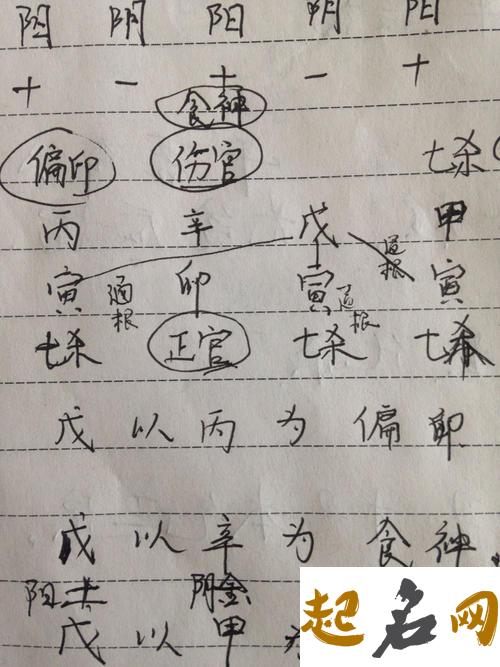 阳 阴 阳 阴 阳
+ - + - +
食神
偏印 伤官 七杀(
丙 辛 戊 甲
通根
寅 卯 寅 寅
通根 通根
七杀 正官 七杀 七杀
戊以丙为偏印
戊以辛为食神.
阳土 阴金
戊以甲
起名网